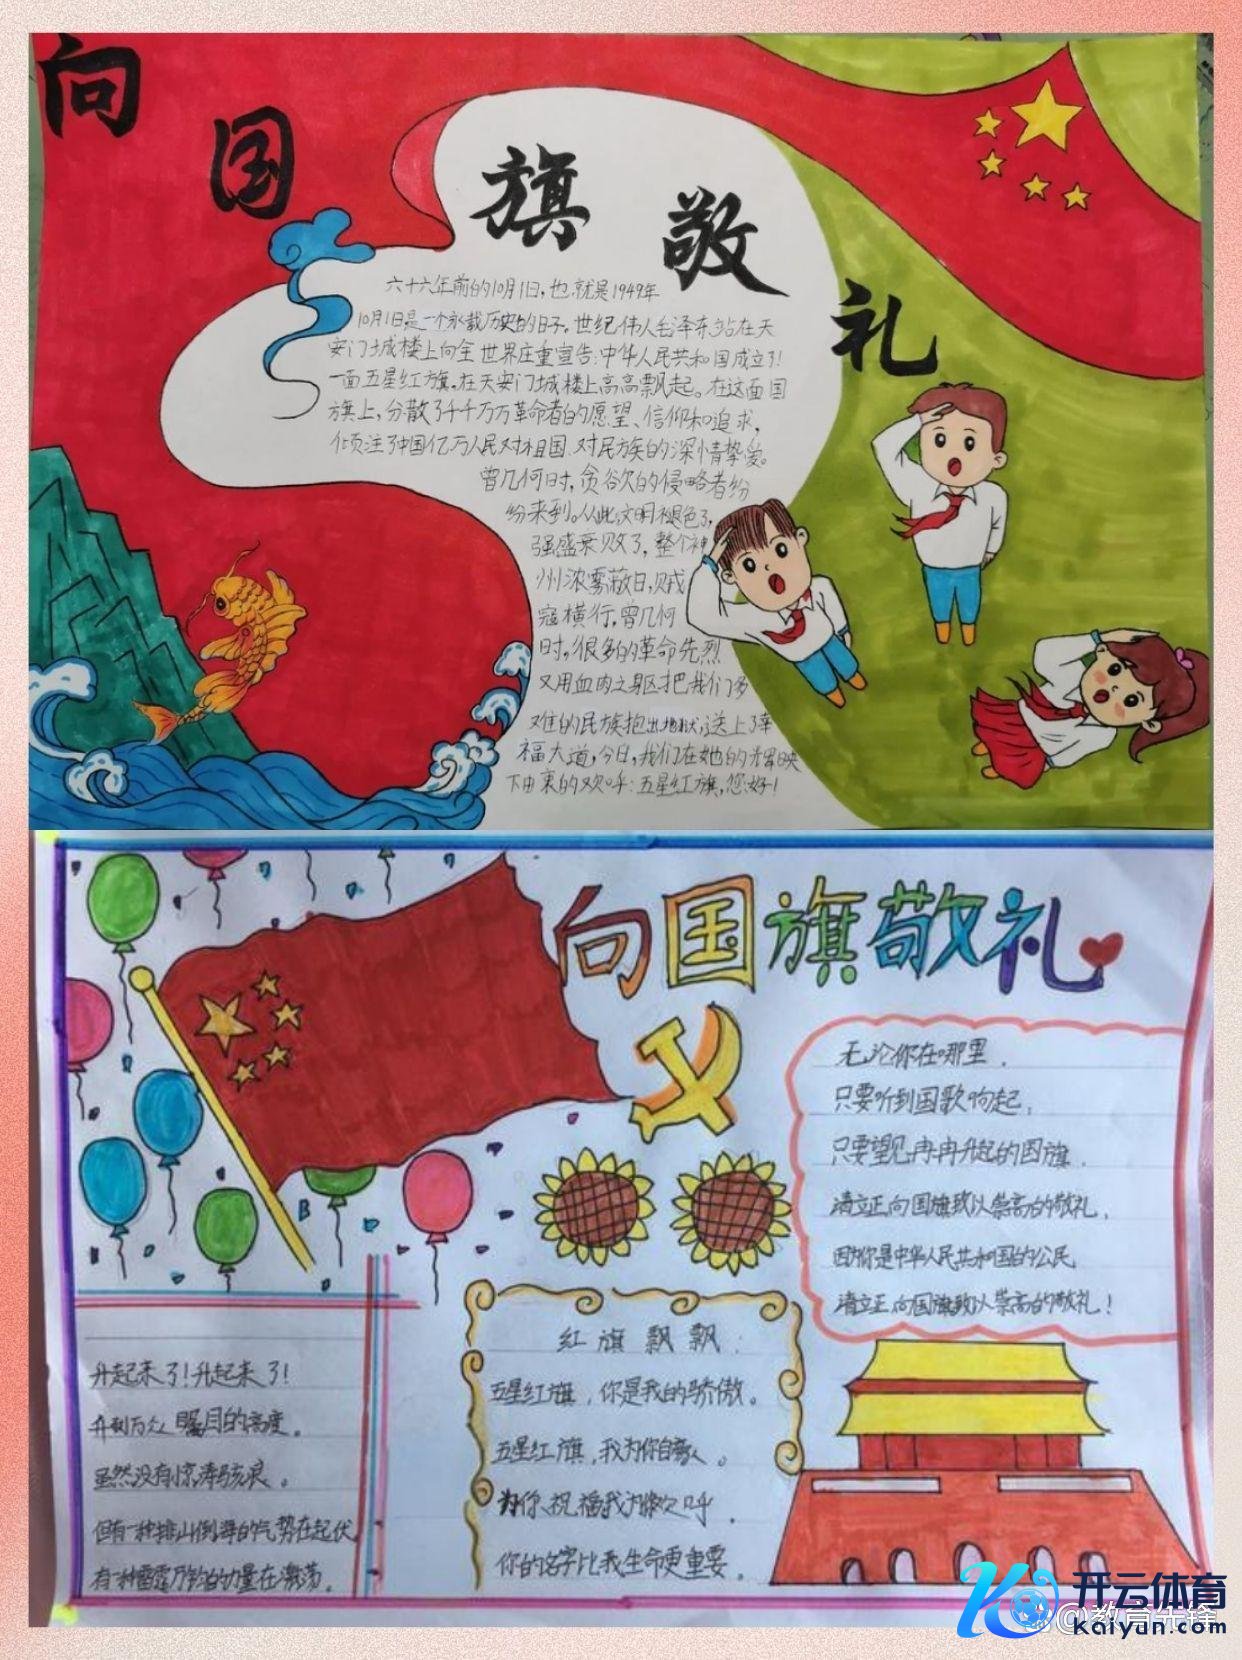 向国旗敬礼
六十六年前的10月1日,也就是1949年
10月1日是一个永载历史的日子。世纪伟人毛泽东站在天
安门城楼上向全世界庄重宣告:中华人民共和国成立了!
一面五星红旗,在天安门城楼上高高飘起。在这面国
旗上,分散了千千万万革命者的愿望、信仰和追求,
倾注了中国亿万人民对祖国、对民族的深情挚爱。
曾几何时,贪欲的侵略者纷
纷来到。从此文明褪色了,
强盛衰败了,整个神
州浓雾蔽日,贼
寇横行,曾几何
时,很多的革命先烈
又用血肉之身区把我们多
难的民族抱出地狱,送上了幸
福大道,今日,我们在她的辉映
下由衷的欢呼:五星红旗,您好!
向国旗敬礼
无论你在哪里,
只要听到国歌响起,
只要望见冉冉升起的国旗,
请立正向国旗致以崇高的敬礼,
因为你是中华人民共和国的公民,
请立正向国旗致以崇高的敬礼!
升起来了!升起来了!
升到万众瞩目的高度。
虽然没有惊涛骇浪。
但有一种排山倒海的气势在起伏
有一种雷霆万钧的力量在激荡。
红旗飘飘:
五星红旗,你是我的骄傲。
五星红旗,我为你自豪。
为你祝福我为你欢呼,
你的名字比我生命更重要。
开云体育
kaiyun.com
@教育先锋